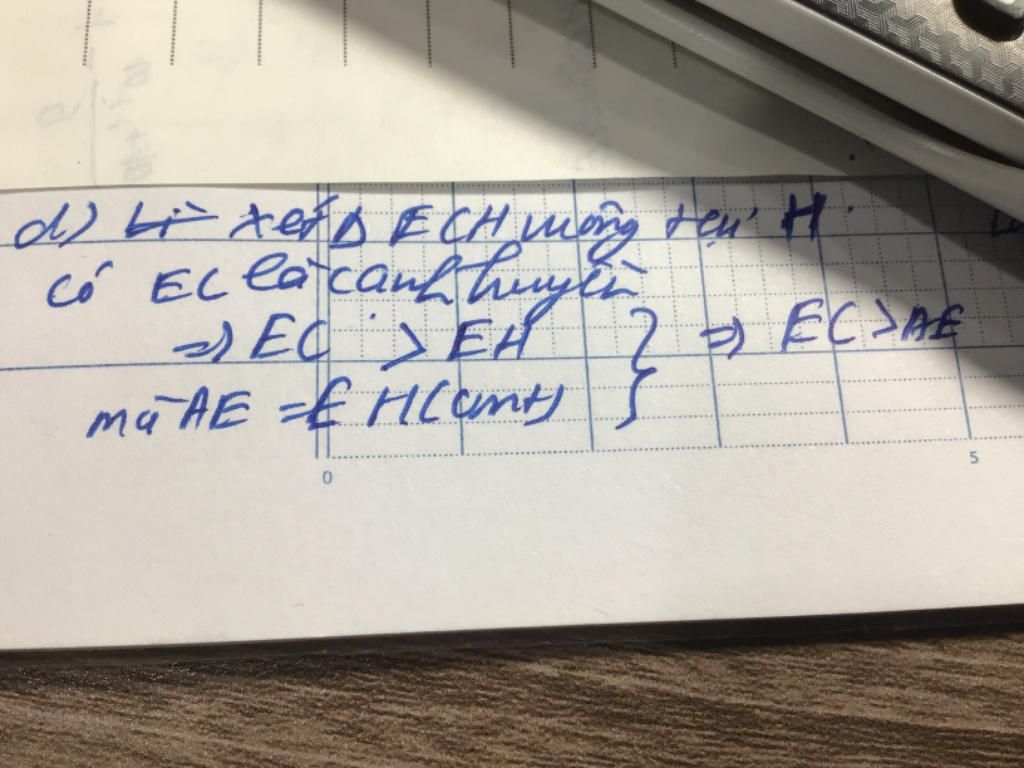 d) xét Δ ECH vuông tại H
có EC là cạnh huyền
=> EC > EH } => EC > AE
mà AE = EH (cmt)
0 5